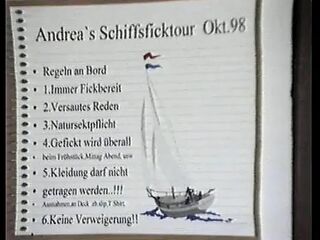 Andrea`s Schiffsficktour Okt.98
• Regeln an Bord
• 1.Immer Fickbereit
• 2.Versautes Reden
• 3.Natursektpflicht
• 4.Gefickt wird überall
beim Frühstück,Mittag Abend, usw
• 5.Kleidung darf nicht
getragen werden..!!!
Ausnahmen,an Deck zb.slip,T Shirt.
• 6.Keine Verweigerung!!